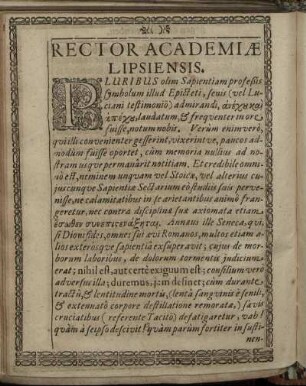 RECTOR ACADEMIÆ
LIPSIENSIS.
PLURIBUS olim Sapientiam professis
symbolum illud Epicteti, senis (vel Lu-
ciani testimoniô) admirandi, ἀνέχου καὶ
ἀπέχου laudatum, & frequenter in ore
fuisse, notum nobis. Verùm enimverò,
qui illi convenienter gesserint, vixerintve, paucos ad-
modùm fuisse oportet, cùm memoria nullius ad no-
stram usque permanârit notitiam. Et credibile omni-
nò est, neminem unquam vel Stoicæ, vel alterius cu-
juscunque Sapientiæ Sectarium eò studiis suis perve-
nisse, ne calamitatibus in se arietantibus animô frange-
geretur, nec contra disciplinæ suæ axiomata etiam
Annæus ille Seneca, qui,
si Dioni fides, omnes sui ævi Romanos, multos etiam a-
lios exterosque sapientiâ exsuperavit; cujus de mor-
borum laboribus, de dolorum tormentis judicium
erat; nihil est, aut certè exiguum est; consilium verò
adversus illa; duremus, jam desinet; cùm durante
tractu, & lentitudine mortis, (lentâ sanguinis è senili,
& extenuatô corpore destillatione remorata,) sævis
cruciatibus (referente Tacitô) defatigaretur, vah!
quàm à seipso descivit! quàm parùm fortiter in susti-
nen-